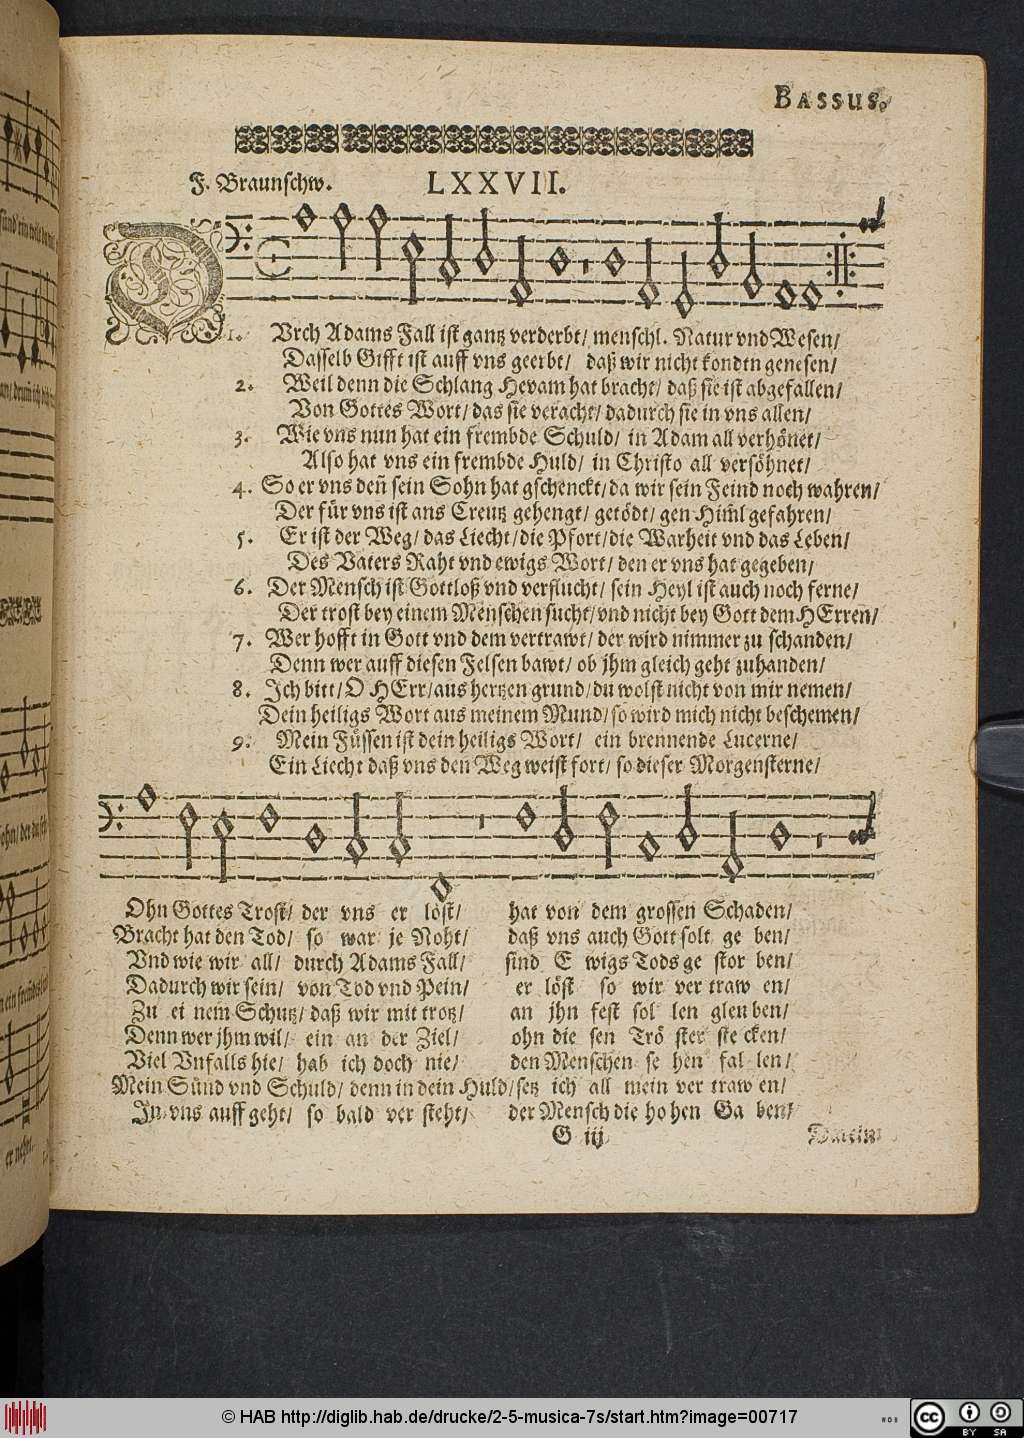 BASSUS.
F. Braunschw. LXXVII.
1. DUrch Adams Fall ist gantz verderbt/ menschl. Natur vnd Wesen/
Dasselb Gifft ist auff vns geerbt/ daß wir nicht kondtn genesen/
2. Weil denn die Schlang Hevam hat bracht/ daß sie ist abgefallen/
Von Gottes Wort/ das sie veracht/ dadurch sie in vns allen/
3. Wie vns nun hat ein frembde Schuld/ in Adam all verhönet/
Also hat vns ein frembde Huld/ in Christo all versöhnet/
4. So er vns deñ sein Sohn hat gschenckt/ da wir sein Feind noch wahren/
Der für vns ist ans Creutz gehengt/ getödt/ gen Him̃l gefahren/
5. Er ist der Weg/ das Liecht/ die Pfort/ die Warheit vnd das Leben/
Des Vaters Raht vnd ewigs Wort/ den er vns hat gegeben/
6. Der Mensch ist Gottloß vnd verflucht/ sein Heyl ist auch noch ferne/
Der trost bey einem Menschen sucht/ vnd nicht bey Gott dem HErren/
7. Wer hofft in Gott vnd dem vertrawt/ der wird nimmer zu schanden/
Denn wer auff diesen Felsen bawt/ ob jhm gleich geht zuhanden/
8. Ich bitt/ O HErr/ aus hertzen grund/ du wolst nicht von mir nemen/
Dein heiligs Wort aus meinem Mund/ so wird mich nicht beschemen/
9. Mein Füssen ist dein heiligs Wort/ ein brennende Lucerne/
Ein Liecht daß vns den Weg weist fort/ so dieser Morgensterne/
Ohn Gottes Trost/ der vns er löst/ hat von dem grossen Schaden/
Bracht hat den Tod/ so war je Noht/ daß vns auch Gott solt ge ben/
Vnd wie wir all/ durch Adams Fall/ sind E wigs Tods ge stor ben/
Dadurch wir sein/ von Tod vnd Pein/ er löst so wir ver traw en/
Zu ei nem Schutz/ daß wir mit trotz/ an jhn fest sol len glen ben/
Denn wer jhm wil/ ein an der Ziel/ ohn die sen Trö ster ste cken/
Viel Vnfalls hie/ hab ich doch nie/ den Menschen se hen fal len/
Mein Sünd vnd Schuld/ denn in dein Huld/ setz ich all mein ver traw en/
In vns auff geht/ so bald ver steht/ der Mensch die ho hen Ga ben/
G iij
© HAB http://diglib.hab.de/drucke/2-5-musica-7s/start.htm?image=00717
cc BY SA